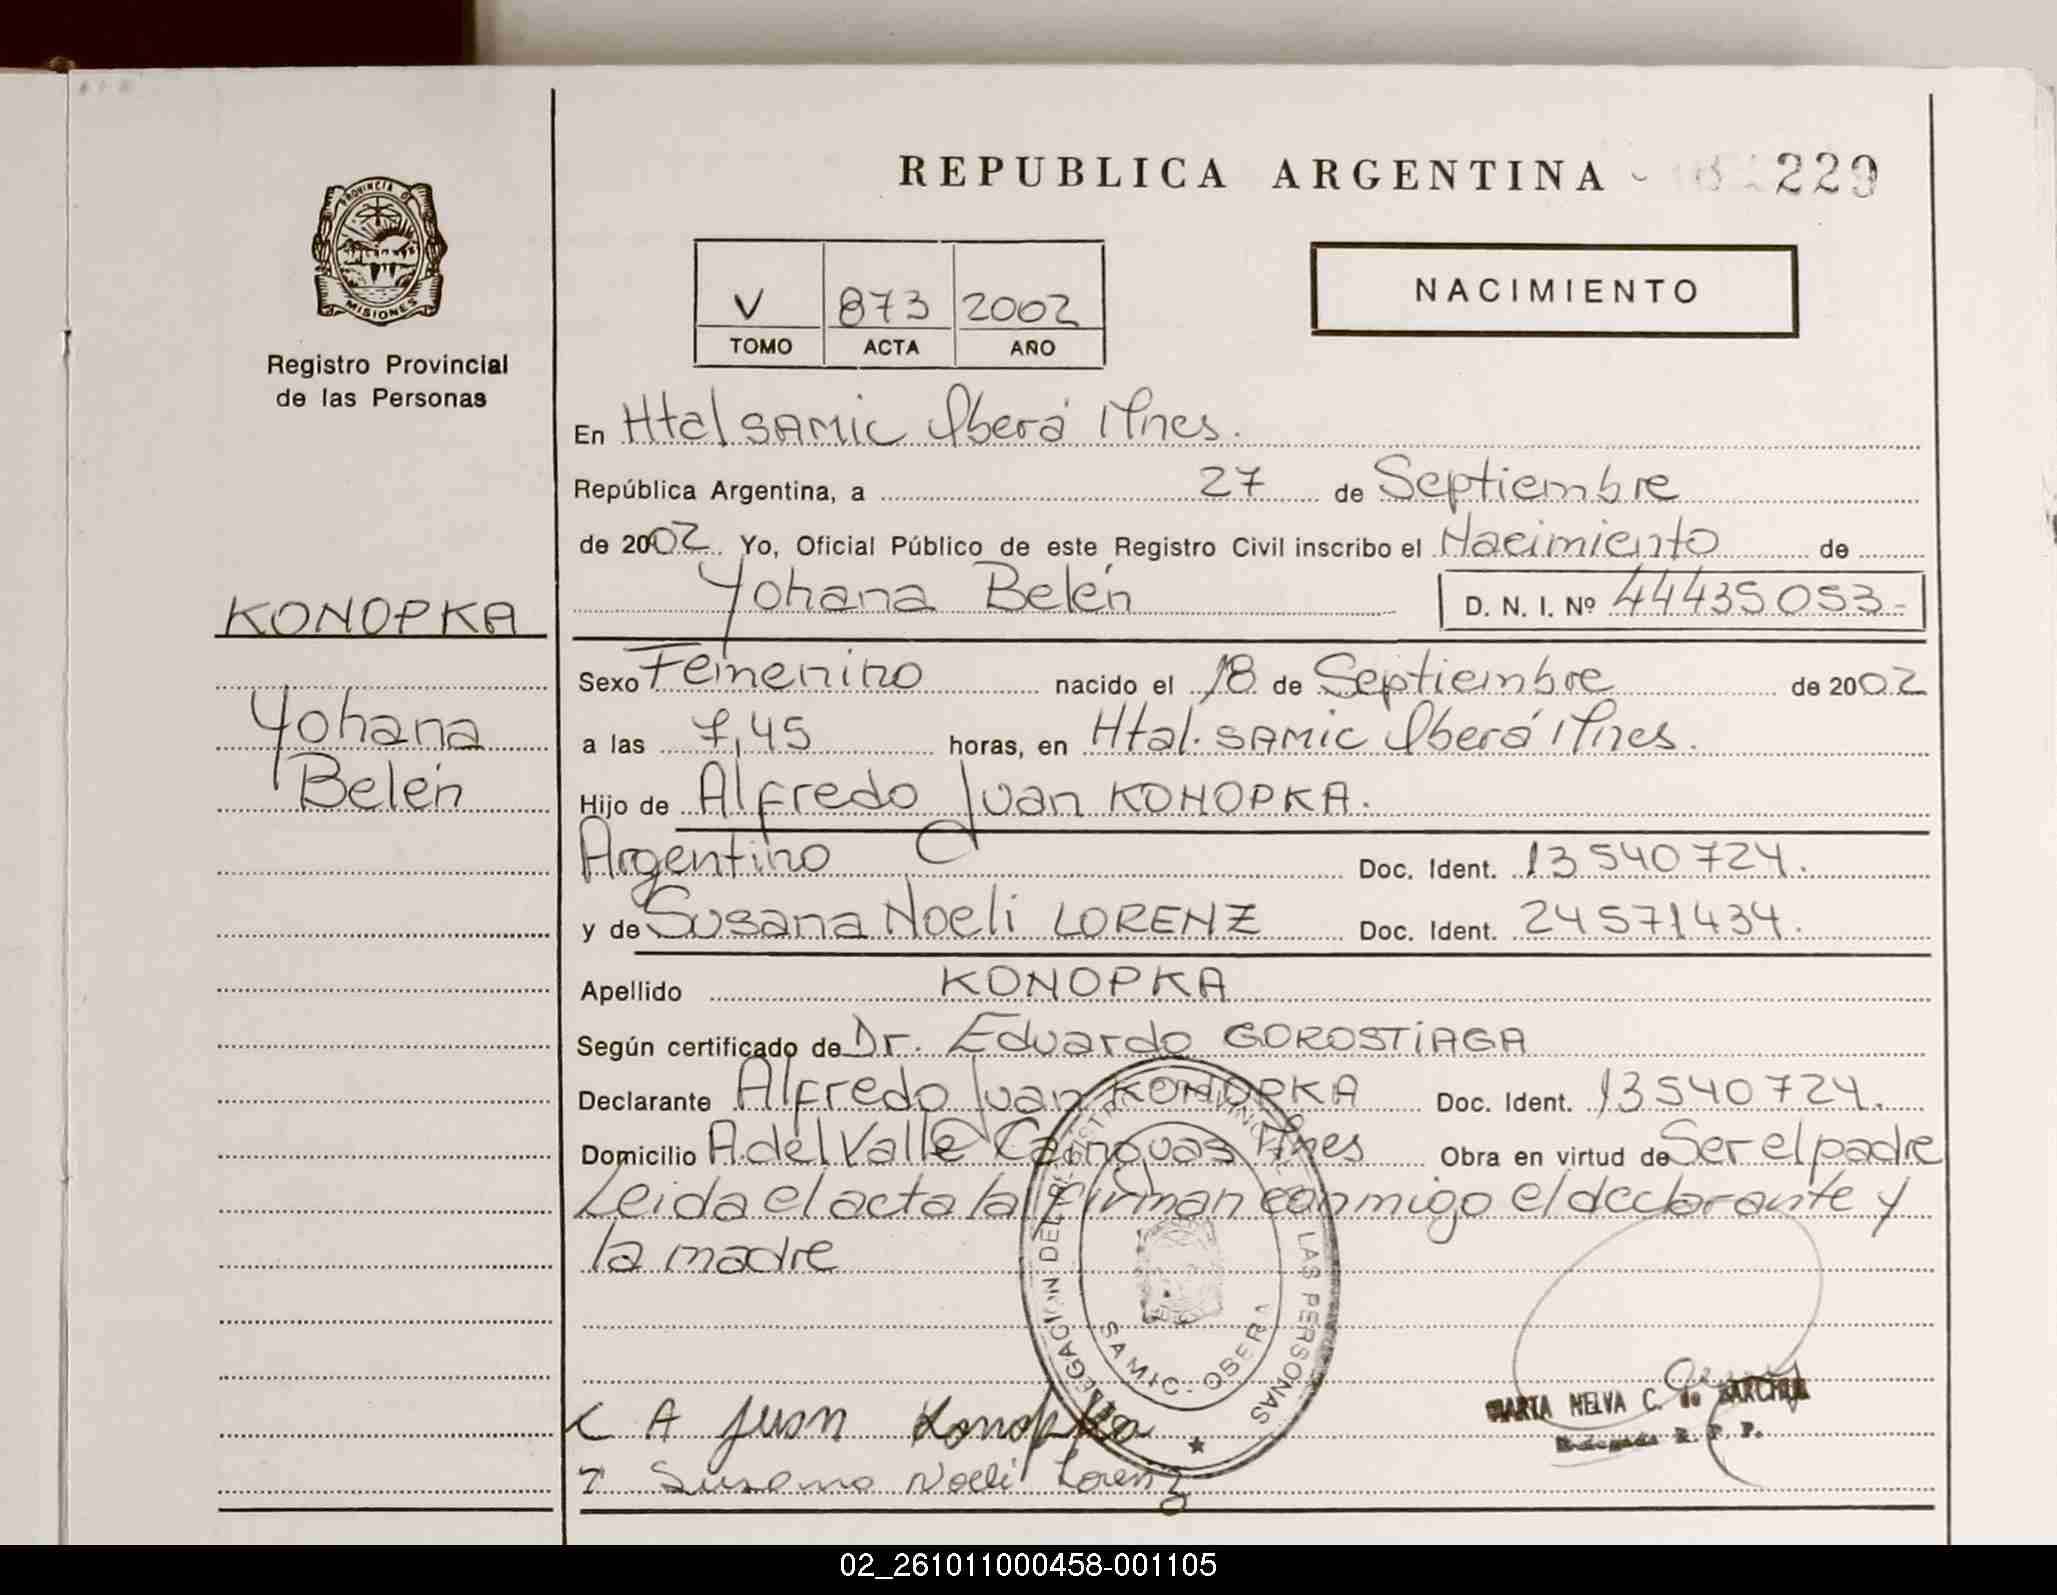 REPUBLICA ARGENTINA
229
PROVINCIA DE
MISIONES
Registro Provincial
de las Personas
V 873 2002
TOMO ACTA AÑO
NACIMIENTO
En Htal SAMIC Oberá Mnes.
República Argentina, a 27 de Septiembre
de 2002 Yo, Oficial Público de este Registro Civil inscribo el Nacimiento de
Yohana Belén D. N. I. Nº 44435053-
KONOPKA
Yohana
Belén
Sexo Femenino nacido el 18 de Septiembre de 2002
a las 7,45 horas, en Htal. SAMIC Oberá Mnes.
Hijo de Alfredo Juan KONOPKA.
Argentino Doc. Ident. 13540724.
y de Susana Noeli LORENZ Doc. Ident. 24571434.
Apellido KONOPKA
Según certificado de Dr. Eduardo GOROSTIAGA
Declarante Alfredo Juan KONOPKA Doc. Ident. 13540724.
Domicilio A. del Valle Canovas Mnes Obra en virtud de Ser el padre
Leida el acta la firman conmigo el declarante y
la madre
DELEGACION DEL REGISTRO PROVINCIAL DE LAS PERSONAS
SAMIC - OBERA
A Juan Konopka
Susana Noeli Lorenz
MARTA NELVA C. de
Delegada R. P. P.
02_261011000458-001105